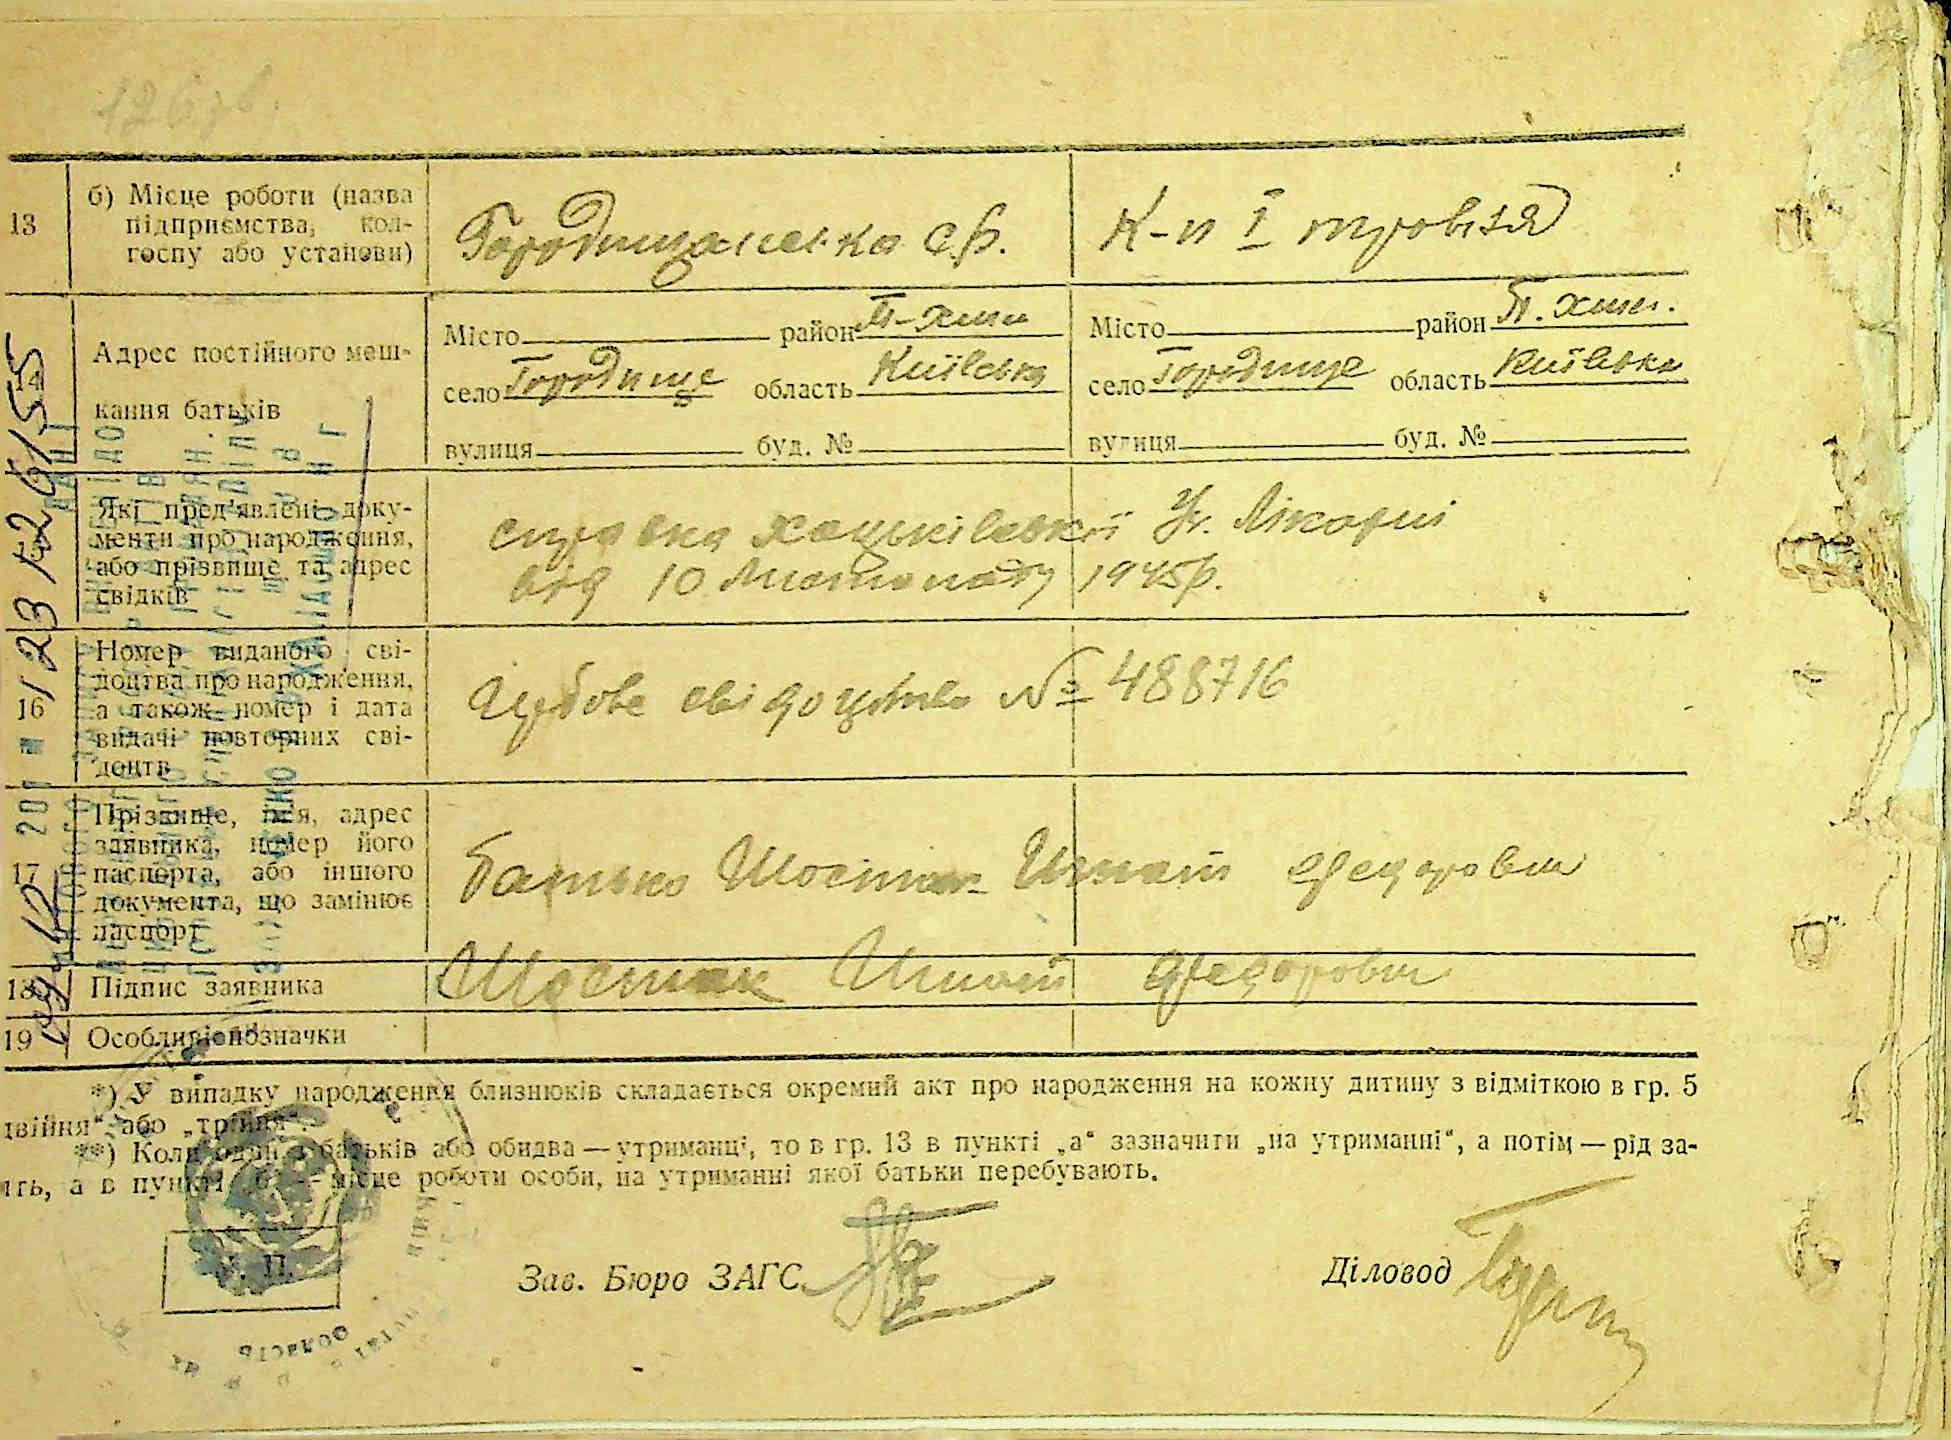 126зв.
13
б) Місце роботи (назва
підприємства, кол-
госпу або установи)
Городищанська с.р.
К-п І травня
Адрес постійного меш-
кання батьків
Місто район П-Хмел
село Городище область Київська
вулиця буд. №
Місто район П. Хмел.
село Городище область Київська
вулиця буд. №
Які пред'явлені доку-
менти про народження,
або прізвище та адрес
свідків
справка Хацьківської Уч. Лікарні
від 10 Листопаду 1945р.
16
Номер виданого сві-
доцтва про народження,
а також номер і дата
видачі повторних сві-
доцтв
свідоцтво № 488716
17
Прізвище, ім'я, адрес
заявника, номер його
паспорта, або іншого
документа, що замінює
паспорт
батько Шостак Игнат Федорович
18
Підпис заявника
Шостак Игнат Федорович
19
Особливі позначки
*) У випадку народження близнюків складається окремий акт про народження на кожну дитину з відміткою в гр. 5
двійня" або „трійня".
**) Коли один з батьків або обидва — утриманці, то в гр. 13 в пункті „а" зазначити „на утриманні", а потім — рід за-
ять, а в пункті „б" — місце роботи особи, на утриманні якої батьки перебувають.
М. П.
Зав. Бюро ЗАГС
Діловод
область